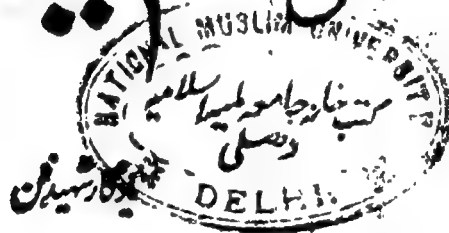 NATIONAL MUSLIM UNIVERSITY
کتب خانہ جامعہ ملیہ اسلامیہ
دہلی
DELHI